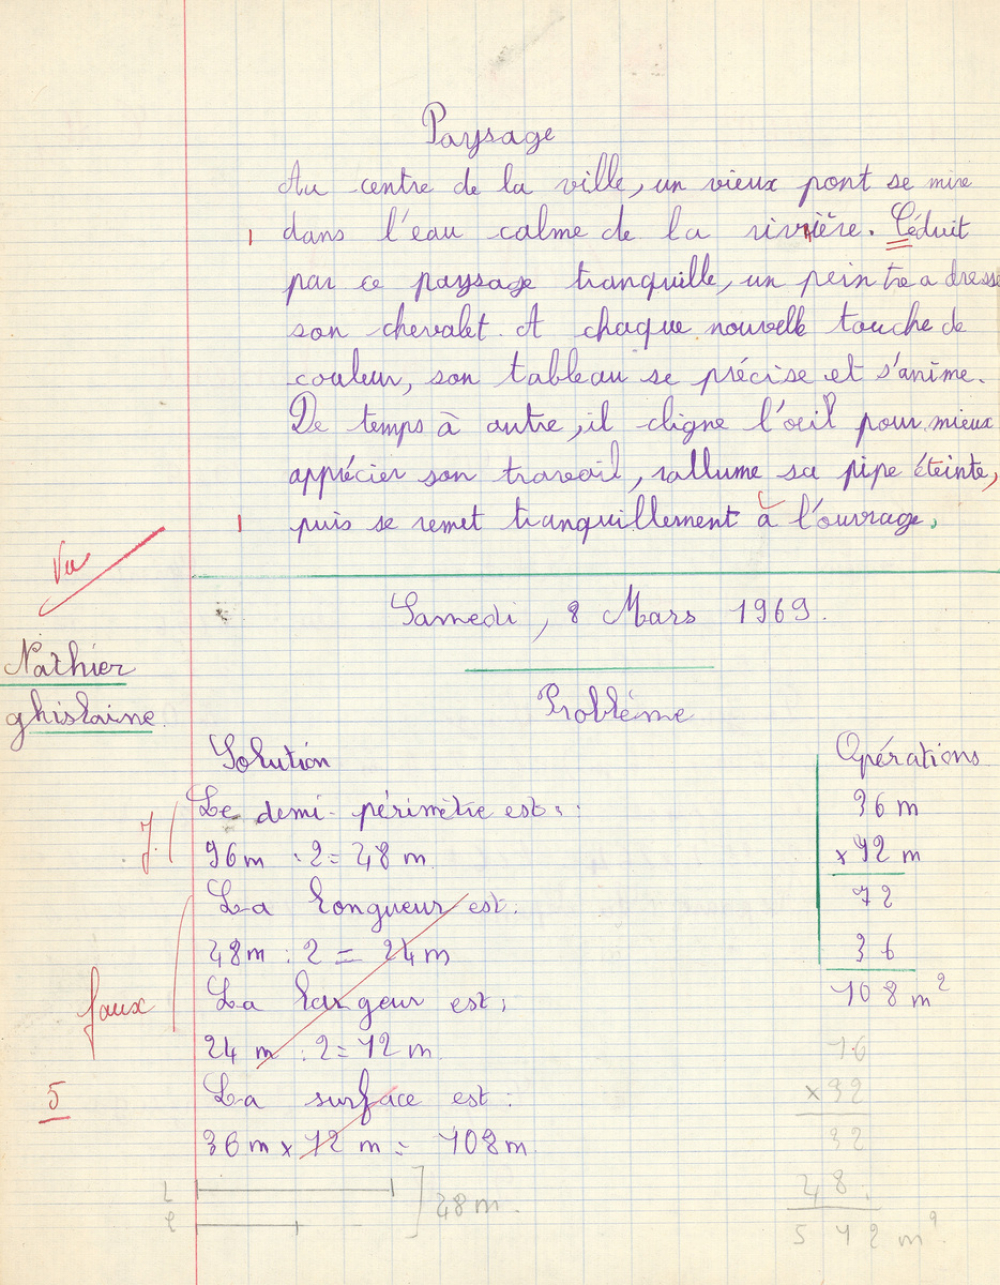 Paysage
Au centre de la ville, un vieux pont se mire
1 dans l'eau calme de la rivière. Céduit
par ce paysage tranquille, un peintre a dressé
son chevalet. A chaque nouvelle touche de
couleur, son tableau se précise et s'anime.
De temps à autre, il cligne l'oeil pour mieux
apprécier son travail, rallume sa pipe éteinte,
1 puis se remet tranquillement à l'ouvrage.
Vu
Samedi, 8 Mars 1969.
Nathier
ghislaine
Problème
Solution
Opérations
Le demi-périmètre est :
36 m
J.
96m : 2 = 48 m
x 12 m
La longueur est.
72
48m : 2 = 24 m
36
faux
La largeur est :
108 m²
24 m : 2 = 12 m
16
5
La surface est :
x 32
36 m x 12 m = 108m
32
L
48.
l
28m.
512 m²